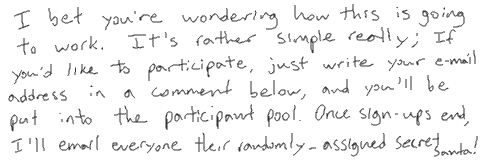 I bet you're wondering how this is going
to work. It's rather simple really; If
you'd like to participate, just write your e-mail
address in a comment below, and you'll be
put into the participant pool. Once sign-ups end,
I'll email everyone their randomly-assigned secret
Santa!